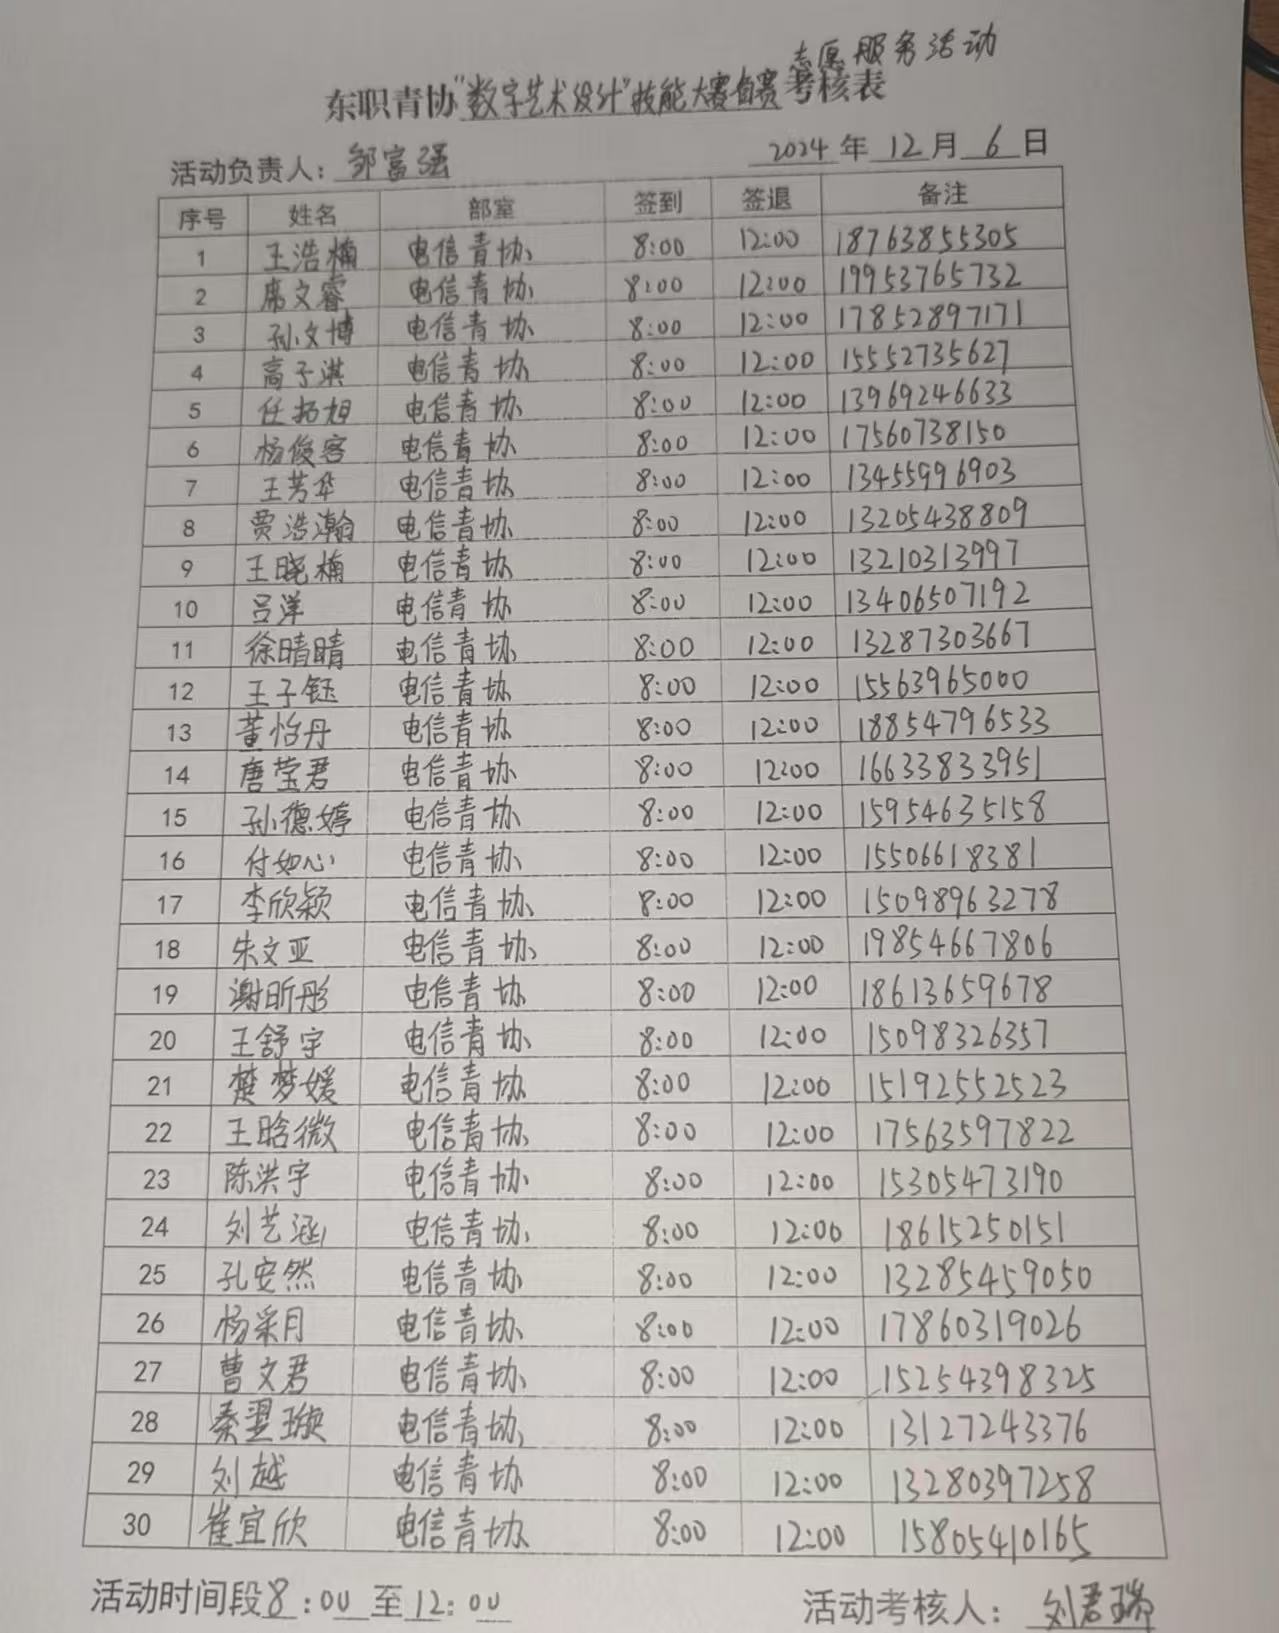 志愿服务活动
东职青协"数字艺术设计"技能大赛省赛考核表
活动负责人：邹富强 2024年12月6日
序号 姓名 部室 签到 签退 备注
1 王浩楠 电信青协 8:00 12:00 18763855305
2 席文睿 电信青协 8:00 12:00 19953765732
3 孙文博 电信青协 8:00 12:00 17852897171
4 高子淇 电信青协 8:00 12:00 15552735627
5 任拓旭 电信青协 8:00 12:00 13969246633
6 杨俊客 电信青协 8:00 12:00 17560738150
7 王芳华 电信青协 8:00 12:00 13455996903
8 贾浩瀚 电信青协 8:00 12:00 13205438809
9 王晓楠 电信青协 8:00 12:00 13210313997
10 吕洋 电信青协 8:00 12:00 13406507192
11 徐晴晴 电信青协 8:00 12:00 13287303667
12 王子钰 电信青协 8:00 12:00 15563965000
13 董怡丹 电信青协 8:00 12:00 18854796533
14 唐莹君 电信青协 8:00 12:00 16633833951
15 孙德婷 电信青协 8:00 12:00 15954635158
16 付如心 电信青协 8:00 12:00 15506618381
17 李欣颖 电信青协 8:00 12:00 15098963278
18 朱文亚 电信青协 8:00 12:00 19854667806
19 谢昕彤 电信青协 8:00 12:00 18613659678
20 王舒宇 电信青协 8:00 12:00 15098326357
21 楚梦媛 电信青协 8:00 12:00 15192552523
22 王晗微 电信青协 8:00 12:00 17563597822
23 陈洪宇 电信青协 8:00 12:00 15305473190
24 刘艺涵 电信青协 8:00 12:00 18615250151
25 孔安然 电信青协 8:00 12:00 13285459050
26 杨采月 电信青协 8:00 12:00 17860319026
27 曹文君 电信青协 8:00 12:00 15254398325
28 秦翌璇 电信青协 8:00 12:00 13127243376
29 刘越 电信青协 8:00 12:00 13280397258
30 崔宜欣 电信青协 8:00 12:00 15805410165
活动时间段8:00至12:00 活动考核人：刘君瑞